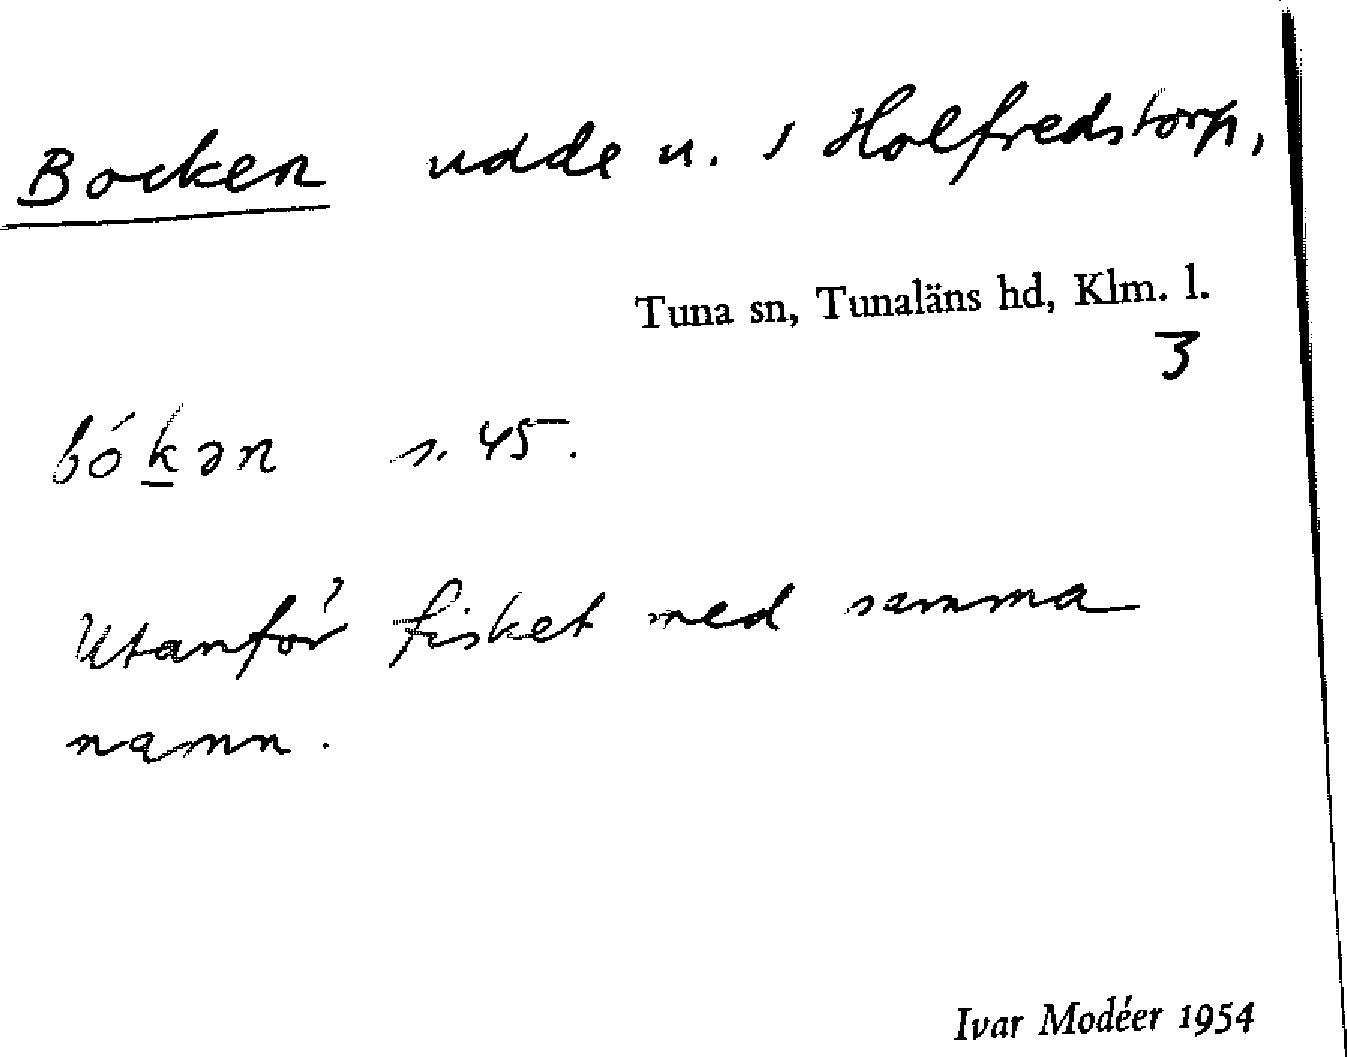 Bocken udde u. s Holfredstorp,
Tuna sn, Tunaläns hd, Klm. l.
3
bók̲ən s. 45.
Utanför fisket med samma
namn.
Ivar Modéer 1954